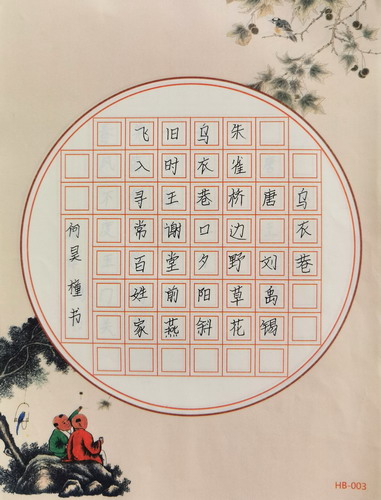 乌衣巷
唐 刘禹锡
朱雀桥边野草花
乌衣巷口夕阳斜
旧时王谢堂前燕
飞入寻常百姓家
何昊槿书
HB-003